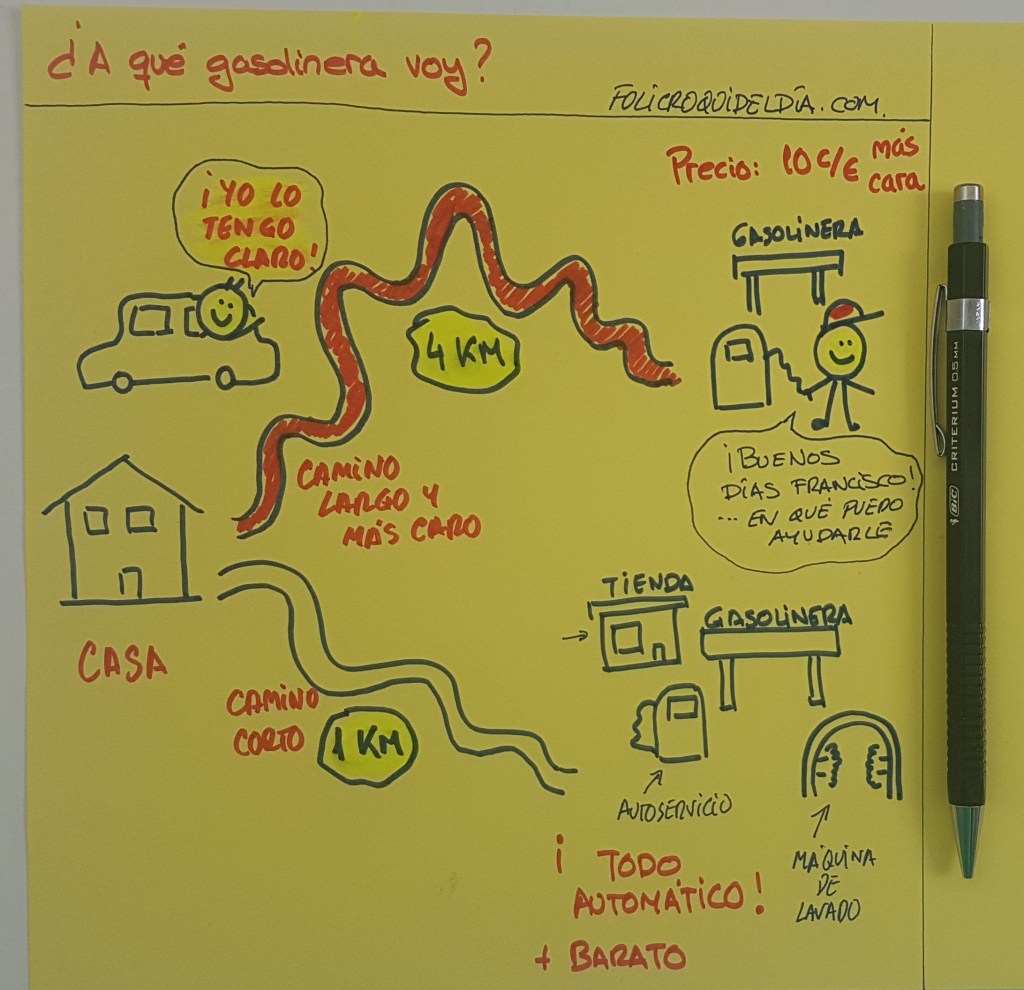 ¿A qué gasolinera voy?
FOLICROQUIDELDÍA.COM.
Precio: 10 c/€ más
cara
¡YO LO
TENGO
CLARO!
GASOLINERA
4 KM
CAMINO
LARGO Y
MÁS CARO
¡BUENOS
DÍAS FRANCISCO!
... EN QUÉ PUEDO
AYUDARLE
CASA
TIENDA
GASOLINERA
CAMINO
CORTO
1 KM
AUTOSERVICIO
MÁQUINA
DE
LAVADO
¡ TODO
AUTOMÁTICO!
+ BARATO
BIC CRITERIUM 0.5 MM